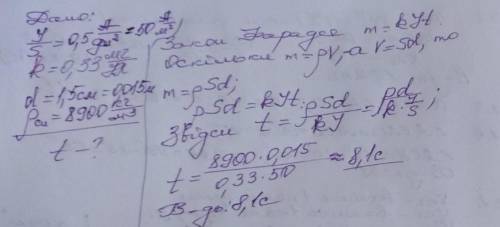 Дано:
I/S = 0,5 А/дм² = 50 А/м²
k = 0,33 мг/Кл
d = 1,5см = 0,015м
ρсм = 8900 кг/м3
t - ?
Закон Фарадея m = kIt.
Оскільки m = ρV, а V = Sd, то
m = ρSd;
ρSd = kIt.
Звідси t = ρSd/kI = ρd/k·I/S;
t = 8900·0,015/0,33·50 ≈ 8,1с
В-дь: 8,1с